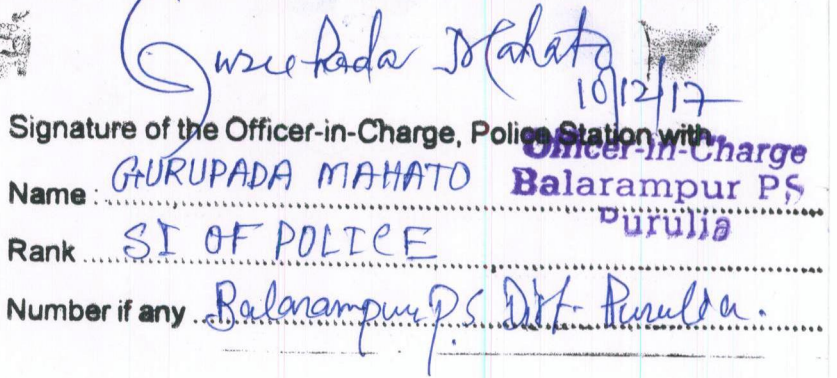 Gurupada Mahato
10/12/17
Signature of the Officer-in-Charge, Police Station with
Officer-in-Charge
Balarampur PS
Purulia
Name : GURUPADA MAHATO
Rank SI OF POLICE
Number if any Balarampur P.S Dist. Purulia.